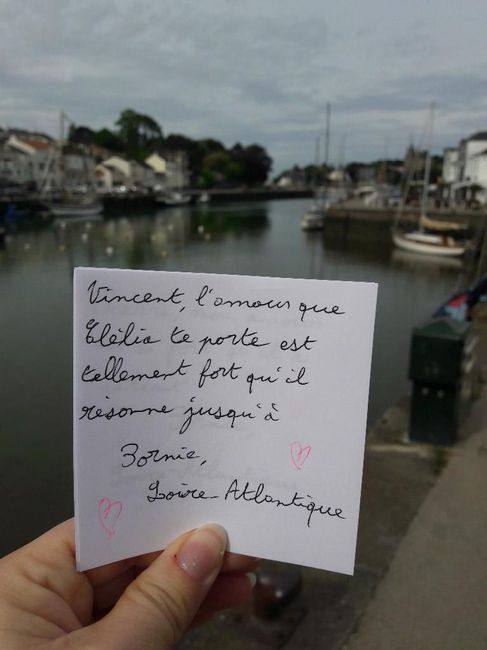 Vincent, l'amour que
Clélia te porte est
tellement fort qu'il
résonne jusqu'à
Pornic,
Loire-Atlantique